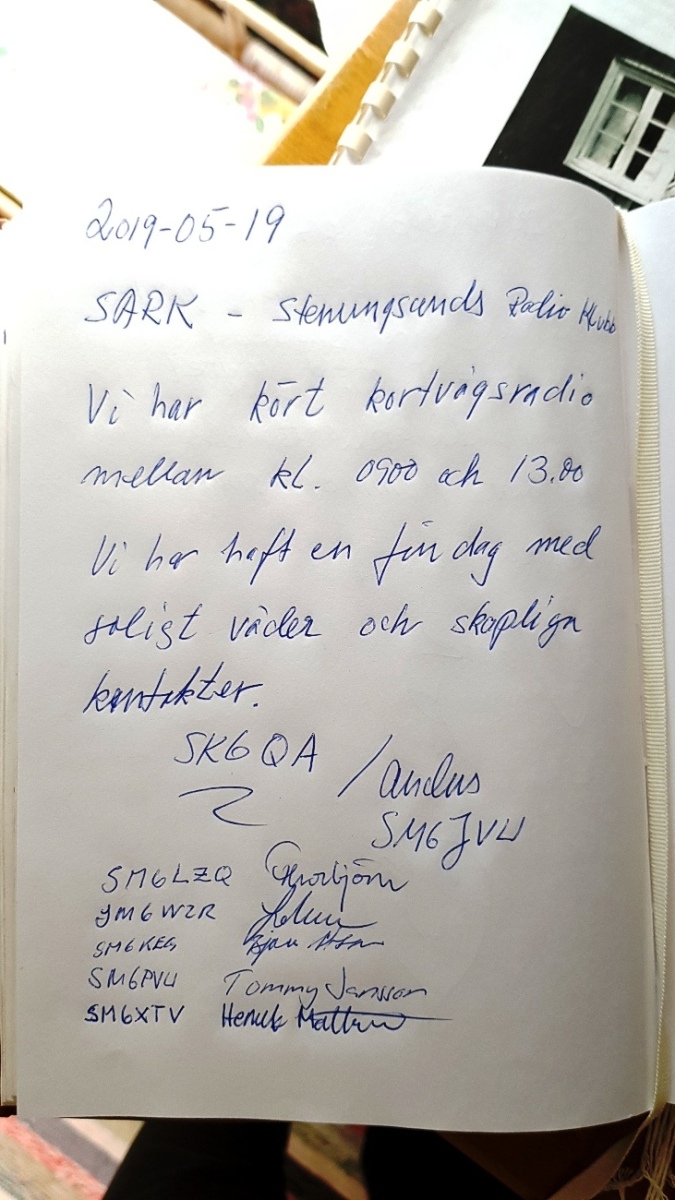 2019-05-19
SARK - Stenungsunds Radio Klubb
Vi har kört kortvågsradio
mellan kl. 0900 och 13.00
Vi har haft en fin dag med
soligt väder och skapliga
kontakter.
SK6QA / Anders
SM6JVU
SM6LZQ Thorbjörn
SM6WZR
SM6KEG Björn
SM6PVU Tommy Jansson
SM6XTV Henrik